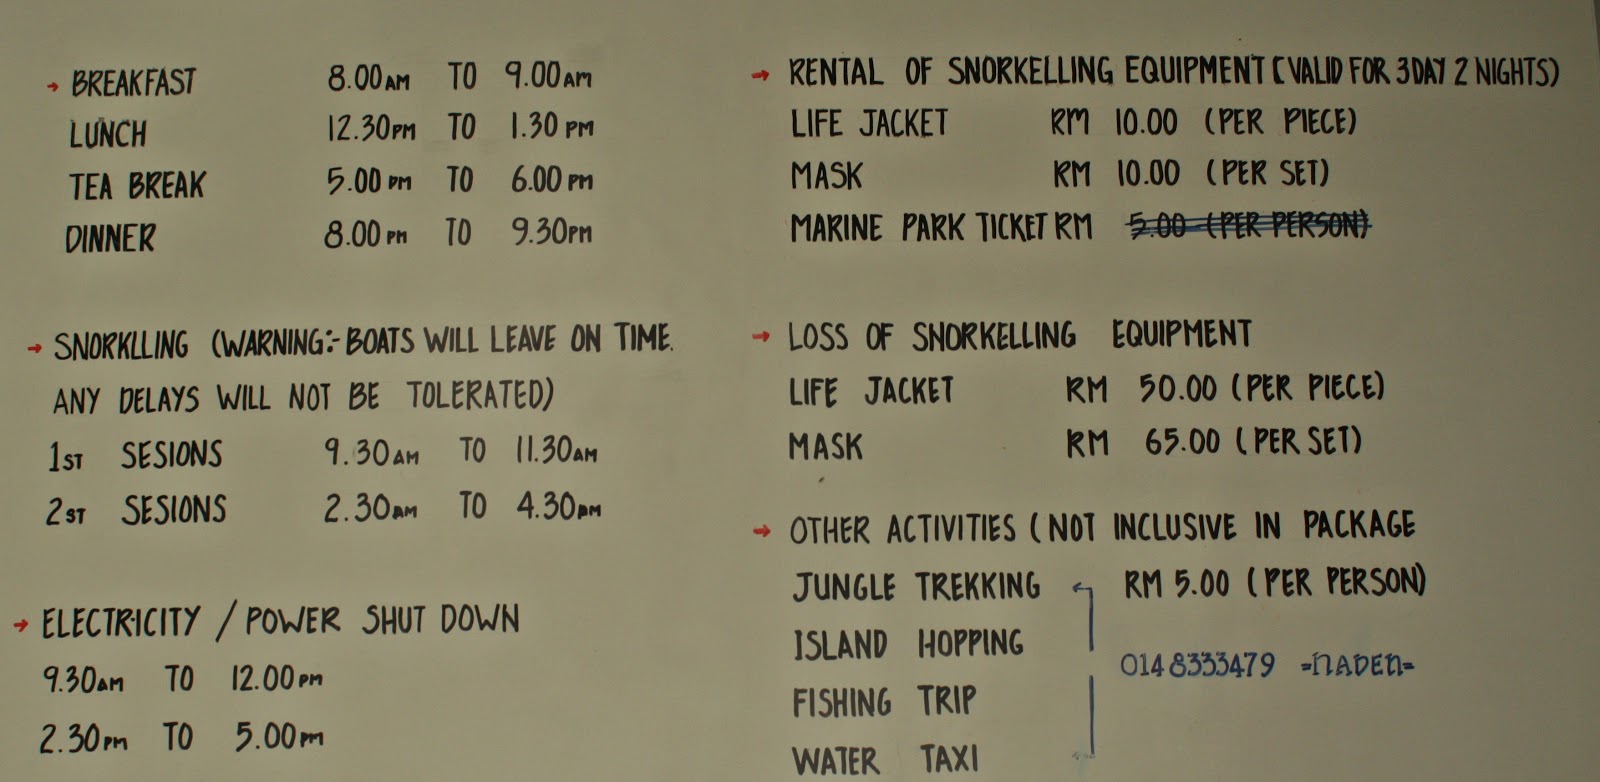 → BREAKFAST 8.00AM TO 9.00AM
LUNCH 12.30PM TO 1.30 PM
TEA BREAK 5.00 PM TO 6.00 PM
DINNER 8.00 PM TO 9.30PM
→ SNORKLLING (WARNING:- BOATS WILL LEAVE ON TIME.
ANY DELAYS WILL NOT BE TOLERATED)
1ST SESIONS 9.30AM TO 11.30AM
2ST SESIONS 2.30AM TO 4.30PM
→ ELECTRICITY / POWER SHUT DOWN
9.30AM TO 12.00PM
2.30PM TO 5.00PM
→ RENTAL OF SNORKELLING EQUIPMENT (VALID FOR 3 DAY 2 NIGHTS)
LIFE JACKET RM 10.00 (PER PIECE)
MASK RM 10.00 (PER SET)
MARINE PARK TICKET RM 5.00 (PER PERSON)
→ LOSS OF SNORKELLING EQUIPMENT
LIFE JACKET RM 50.00 (PER PIECE)
MASK RM 65.00 (PER SET)
→ OTHER ACTIVITIES (NOT INCLUSIVE IN PACKAGE
JUNGLE TREKKING RM 5.00 (PER PERSON)
ISLAND HOPPING
0148333479 =NADEN=
FISHING TRIP
WATER TAXI